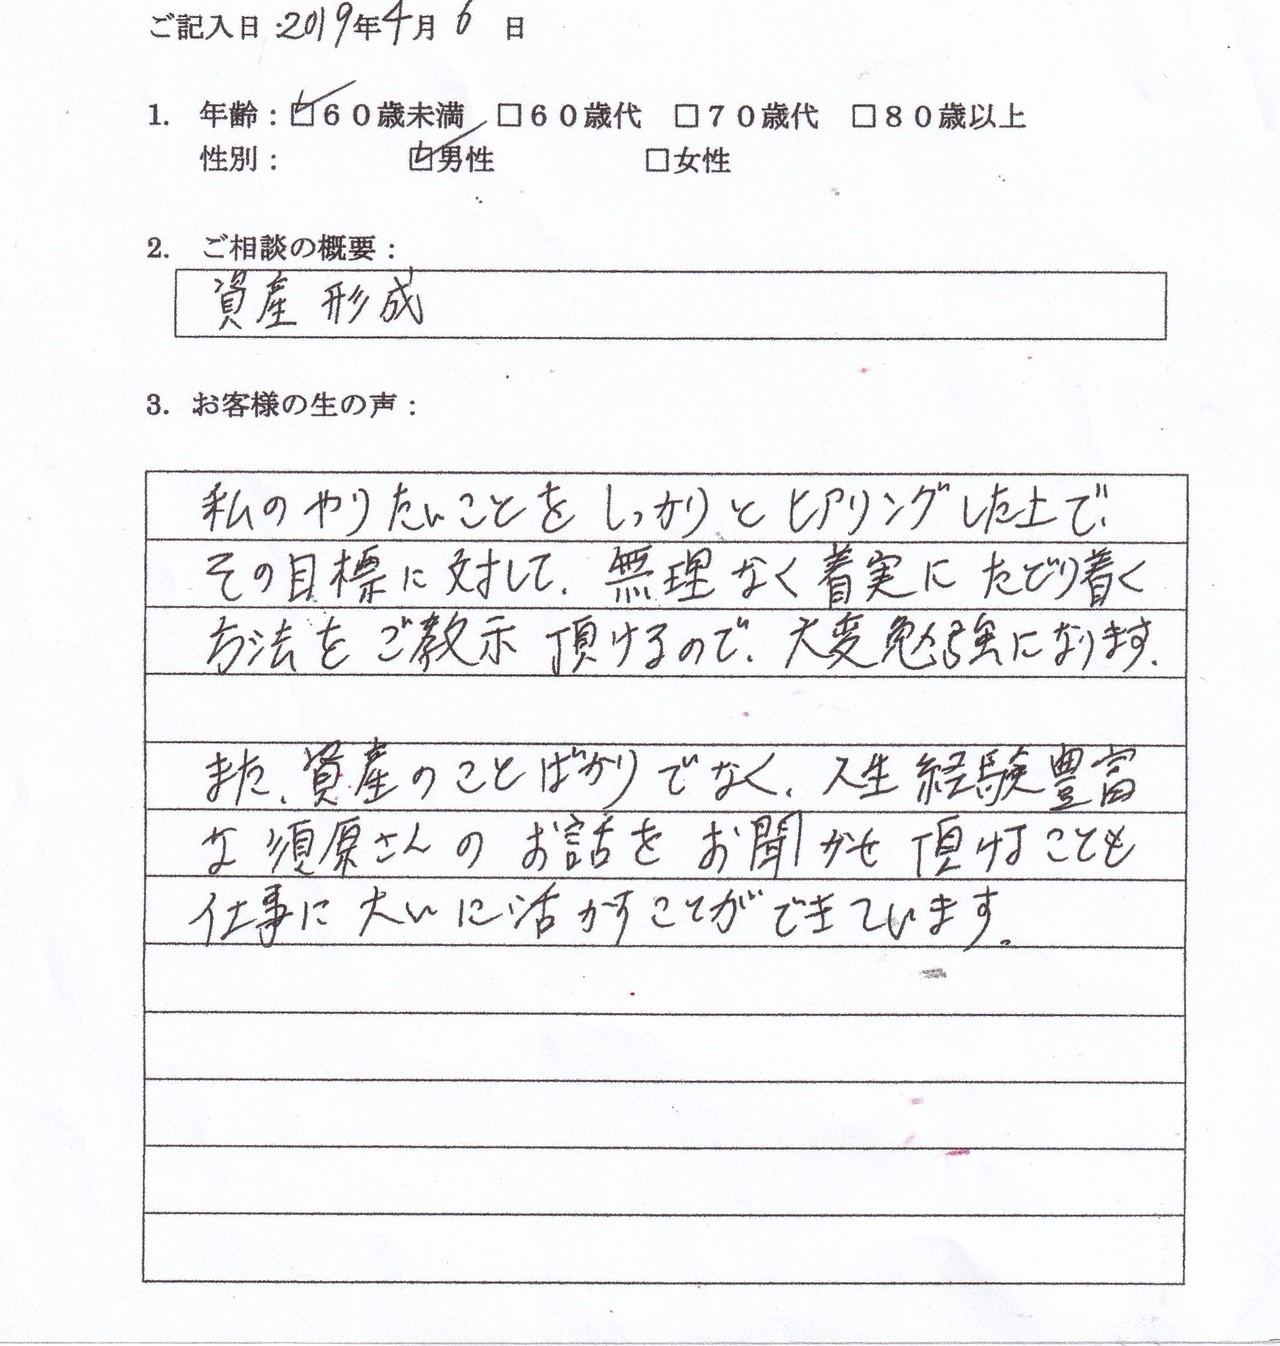 ご記入日:2019年4月6日
1. 年齢:☑60歳未満 □60歳代 □70歳代 □80歳以上
性別: ☑男性 □女性
2. ご相談の概要:
資産形成
3. お客様の生の声:
私のやりたいことをしっかりとヒアリングした上で、
その目標に対して、無理なく着実にたどり着く
方法をご教示頂けるので、大変勉強になります。
また、資産のことばかりでなく、人生経験豊富
な須原さんのお話をお聞かせ頂けることも
仕事に大いに活かすことができています。